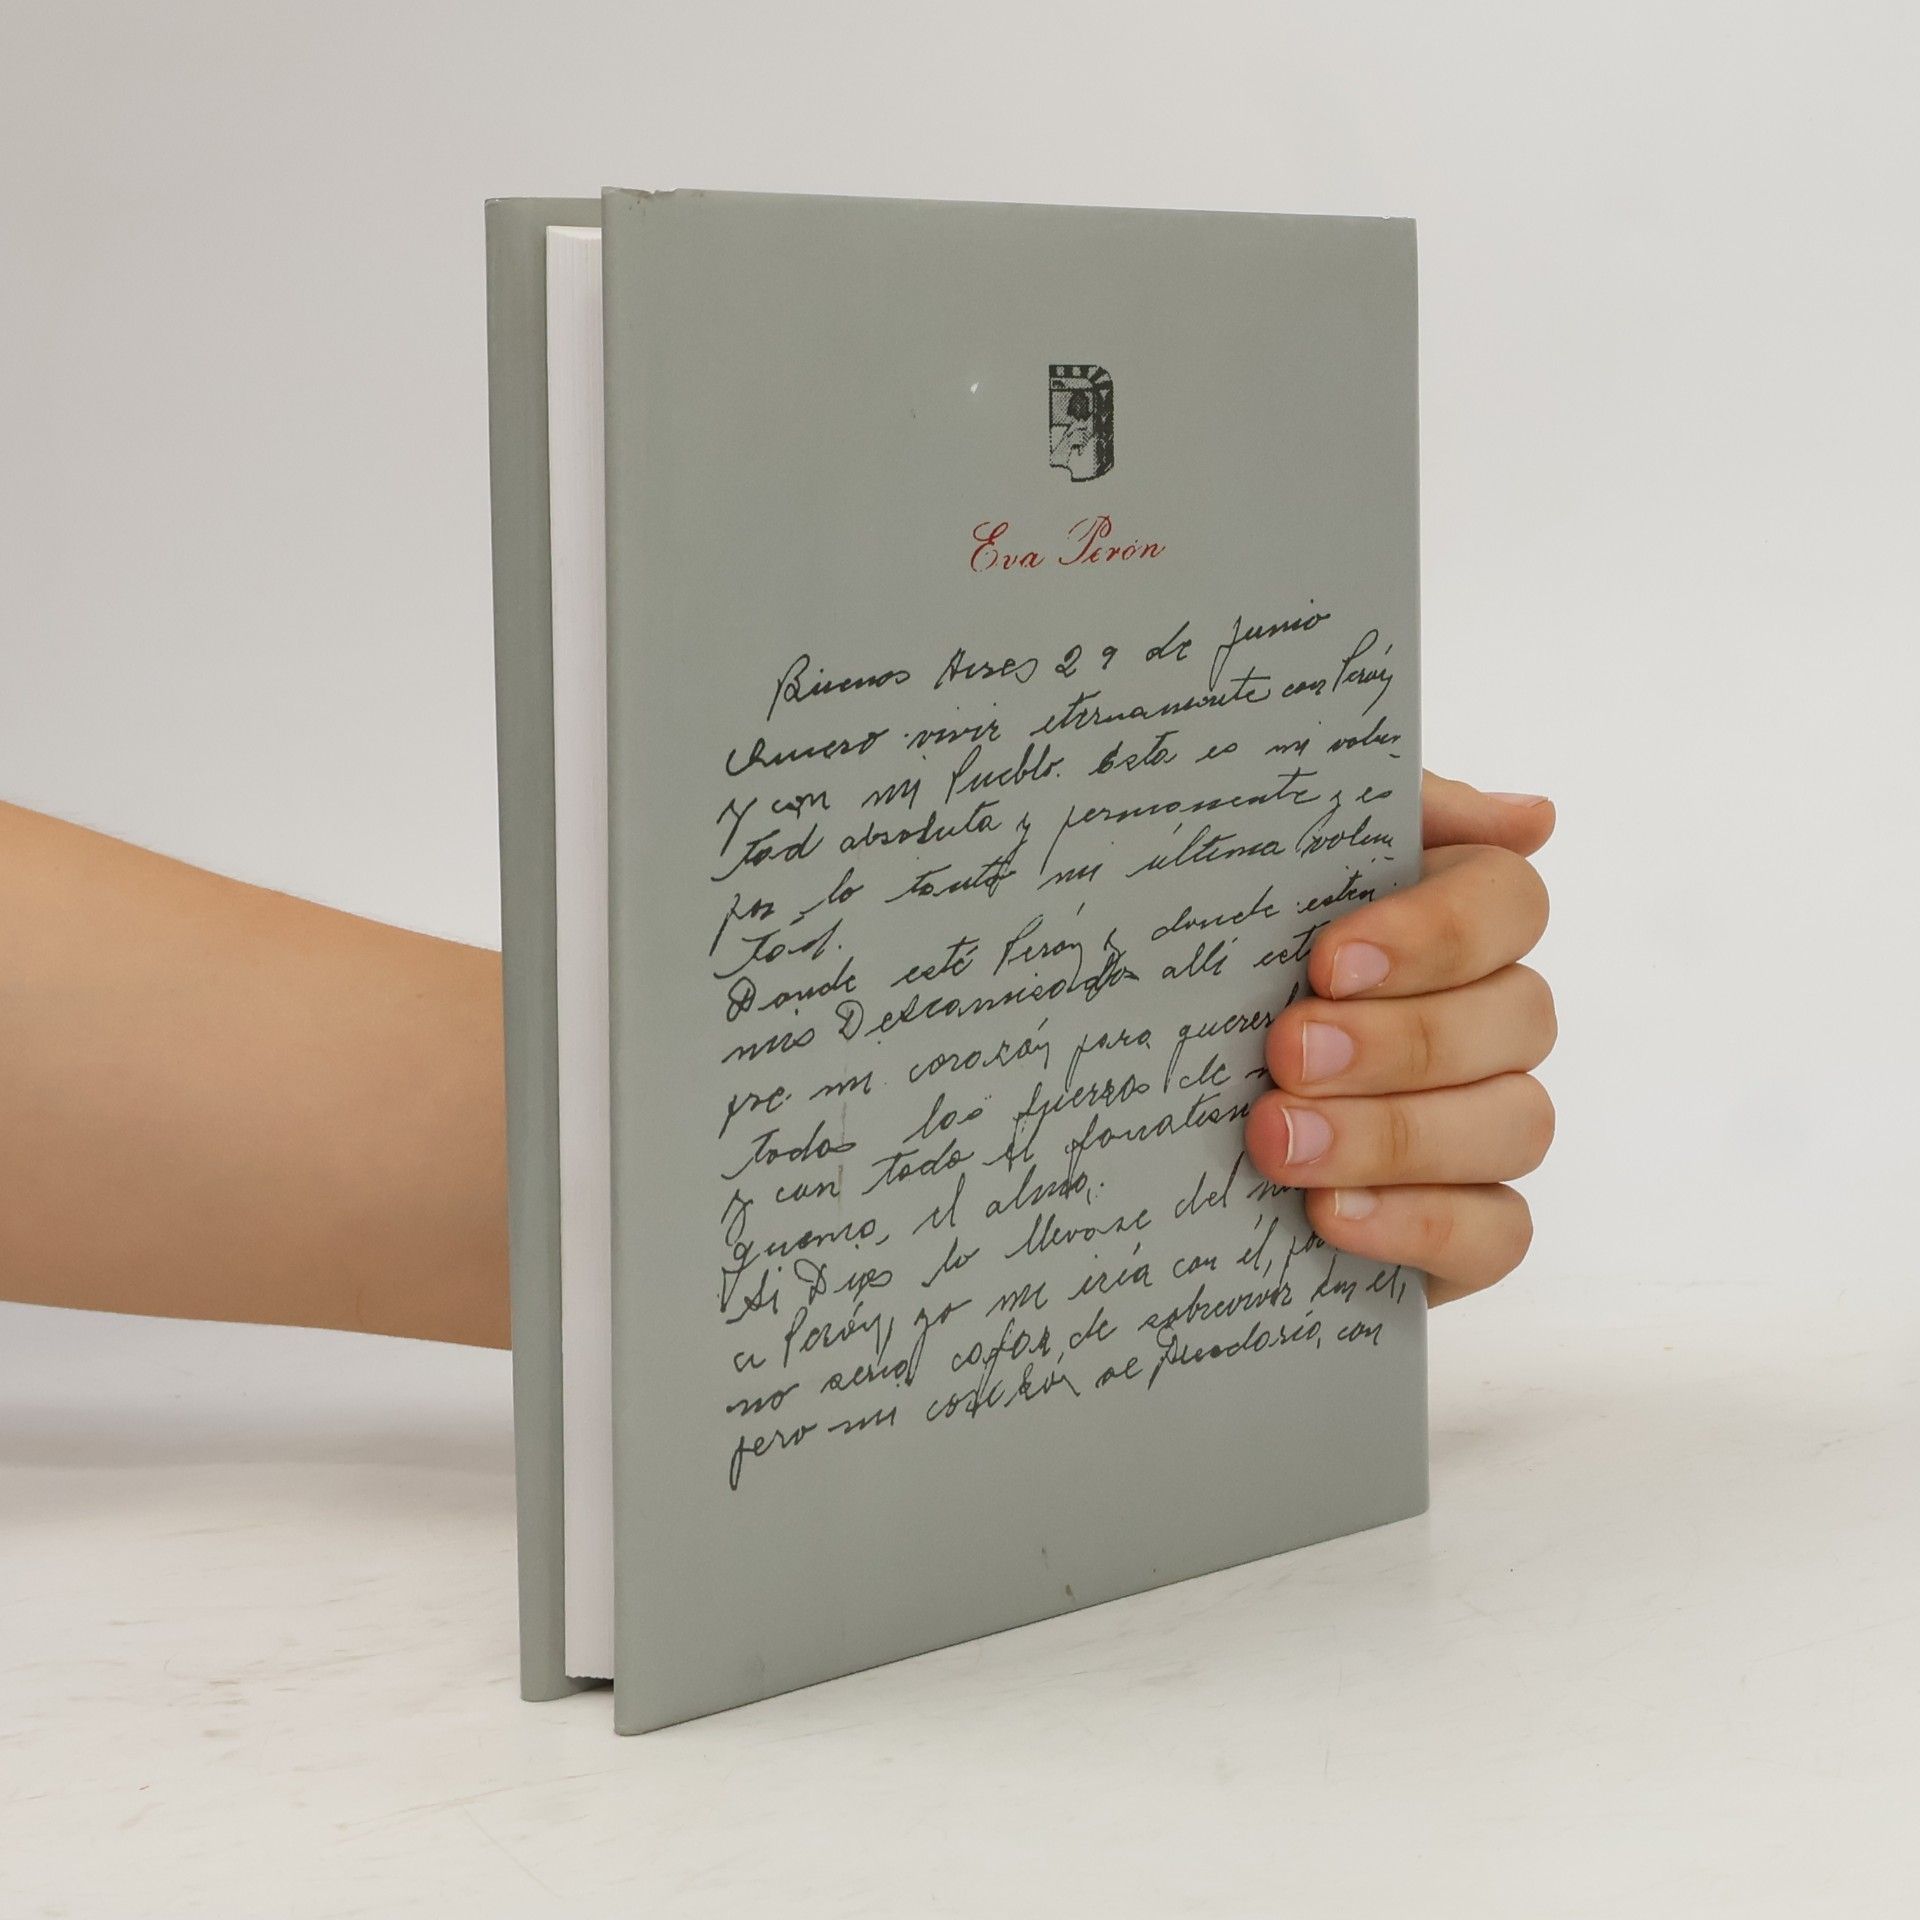 Eva Perón
Buenos Aires 29 de Junio
Quiero vivir eternamente con Perón
y con mi Pueblo. Esta es mi volun-
tad absoluta y permanente y es
por lo tanto mi última volun-
tad.
Donde esté Perón y donde estén
mis Descamisados allí est
pre mi corazón para querer
todas las fuerzas de
y con todo el fanatism
quema el alma.
Si Dios lo llevase del
a Perón, yo me iría con él,
no sería capaz de sobrevivir sin el,
pero mi corazón se quedaría, con